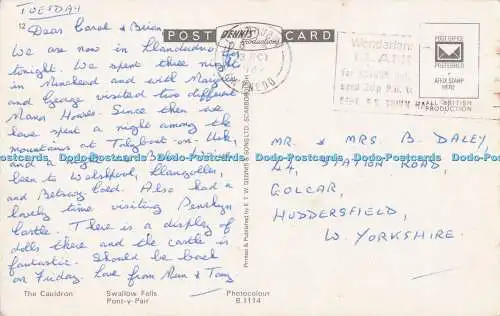 TUESDAY
12
POST CARD
DENNIS
Productions
Dear Carol & Brian,
We are now in Llandudno for
tonight. We spent three nights
in Minehead and with Marilyn
George visited two different
Manor Houses. Since then we
have spent a night among the
mountains at Talybont-on-Usk,
and a night
been to Welshpool, Llangollen,
and Betws-y-Coed. Also had a
lovely time visiting Penrhyn
Castle. There is a display of
dolls there and the castle is
fantastic. Should be back
on Friday. Love from Mum & Tony
The Cauldron
Swallow Falls
Pont-y-Pair
Photocolour
B.1114
Printed & Published by E. T. W. DENNIS & SONS LTD. SCARBOROUGH
POST OFFICE
PREFERRED
AFFIX STAMP
HERE
ALL BRITISH
PRODUCTION
MR. & MRS B. DALEY,
STATION ROAD,
GOLCAR,
HUDDERSFIELD,
W. YORKSHIRE.
Dodo-Postcards Dodo-Postcards Dodo-Postcards Dodo-Postcards